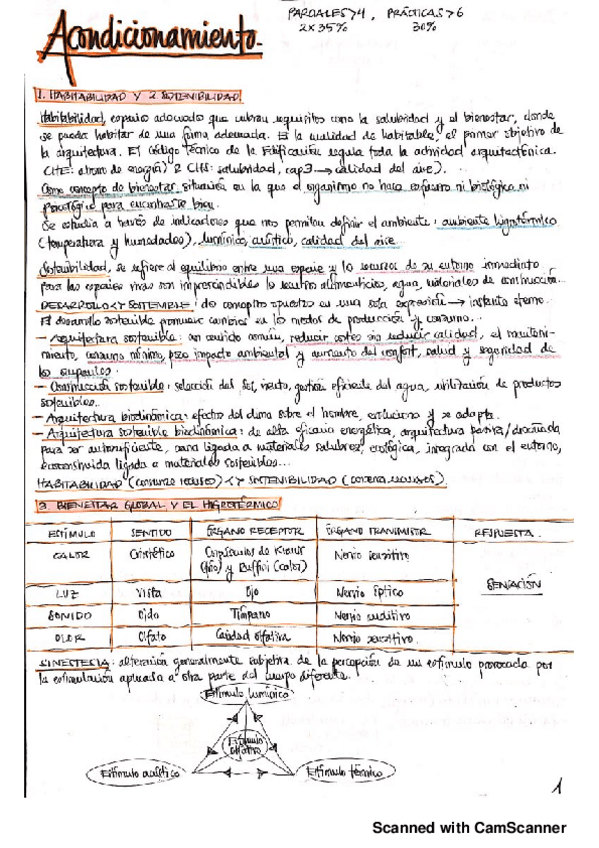 Acondicionamiento.
PARCIALES>4, PRÁCTICAS>6
2x35% 30%
1. HABITABILIDAD Y 2. SOSTENIBILIDAD
Habitabilidad, espacios adecuados que cubran requisitos como la salubridad y el bienestar, donde
se pueda habitar de una forma adecuada. Es la cualidad de habitable, el primer objetivo de
la arquitectura. El Código Técnico de la Edificación regula toda la actividad arquitectónica.
(HE: ahorro de energía) & (HS: salubridad, cap3 → calidad del aire).
Como concepto de bienestar, situación en la que el organismo no hace esfuerzo ni biológico ni
psicológico para encontrarse bien.
Se estudia a través de indicadores que nos permitan definir el ambiente: ambiente higrotérmico
(temperatura y humedades), lumínico, acústico, calidad del aire...
Sostenibilidad, se refiere al equilibrio entre una especie y los recursos de su entorno inmediato
para las especies vivas son imprescindibles los recursos alimenticios, agua, materiales de construcción...
DESARROLLO SOSTENIBLE: dos conceptos opuestos en una sola expresión → instante eterno.
El desarrollo sostenible promueve cambios en los modos de producción y consumo...
- Arquitectura sostenible: un sentido común, reducir costes sin reducir calidad, el manteni-
miento, consumo mínimo, poco impacto ambiental y aumento del confort, salud y seguridad de
los ocupantes.
- Construcción sostenible: selección del sol, viento, gestión eficiente del agua, utilización de productos
sostenibles...
- Arquitectura biodinámica: efecto del clima sobre el hombre, evoluciona y se adapta.
- Arquitectura sostenible biodinámica: de alta eficacia energética, arquitectura pasiva/diseñada
para ser autosuficiente, sana ligada a materiales salubres, ecológica, integrada con el entorno,
ligada a materiales sostenibles...
HABITABILIDAD (consume recursos) <-> SOSTENIBILIDAD (conserva recursos).
3. BIENESTAR GLOBAL Y EL HIGROTÉRMICO
ESTÍMULO SENTIDO ÓRGANO RECEPTOR ÓRGANO TRANSMISOR RESPUESTA
CALOR Cinestésico Corpúsculos de Krause (frío) y Ruffini (calor) Nervio sensitivo
SENSACIÓN
LUZ Vista Ojo Nervio óptico
SONIDO Oído Tímpano Nervio auditivo
OLOR Olfato Cavidad olfativa Nervio sensitivo.
SINESTESIA: alteración generalmente subjetiva de la percepción de un estímulo provocada por
la estimulación aplicada a otra parte del cuerpo diferente.
Estímulo lumínico
Estímulo olfativo
Estímulo acústico
Estímulo térmico
1
Scanned with CamScanner